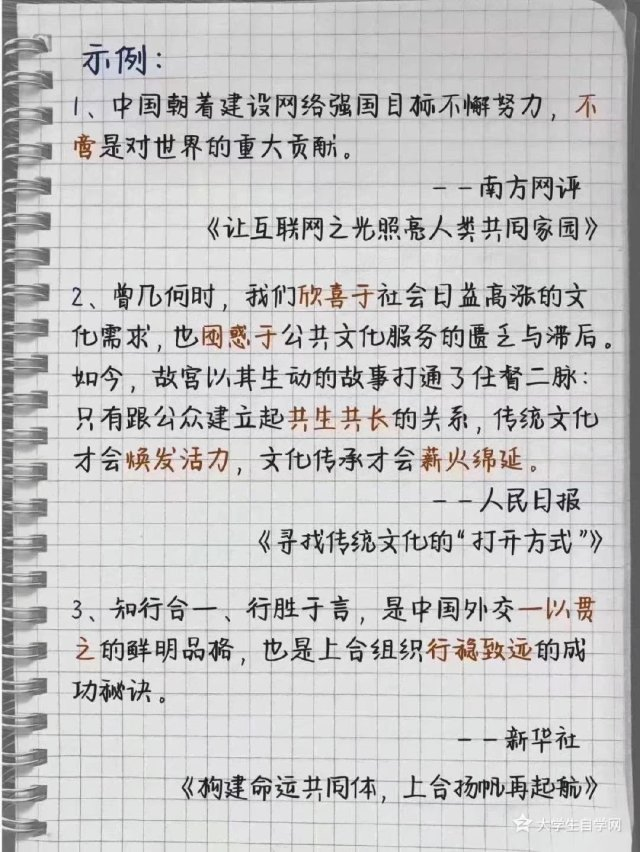 示例：
1、中国朝着建设网络强国目标不懈努力，不
啻是对世界的重大贡献。
——南方网评
《让互联网之光照亮人类共同家园》
2、曾几何时，我们欣喜于社会日益高涨的文
化需求，也困惑于公共文化服务的匮乏与滞后。
如今，故宫以其生动的故事打通了任督二脉：
只有跟公众建立起共生共长的关系，传统文化
才会焕发活力，文化传承才会薪火绵延。
——人民日报
《寻找传统文化的“打开方式”》
3、知行合一、行胜于言，是中国外交一以贯
之的鲜明品格，也是上合组织行稳致远的成
功秘诀。
——新华社
《构建命运共同体，上合扬帆再起航》
大学生自学网